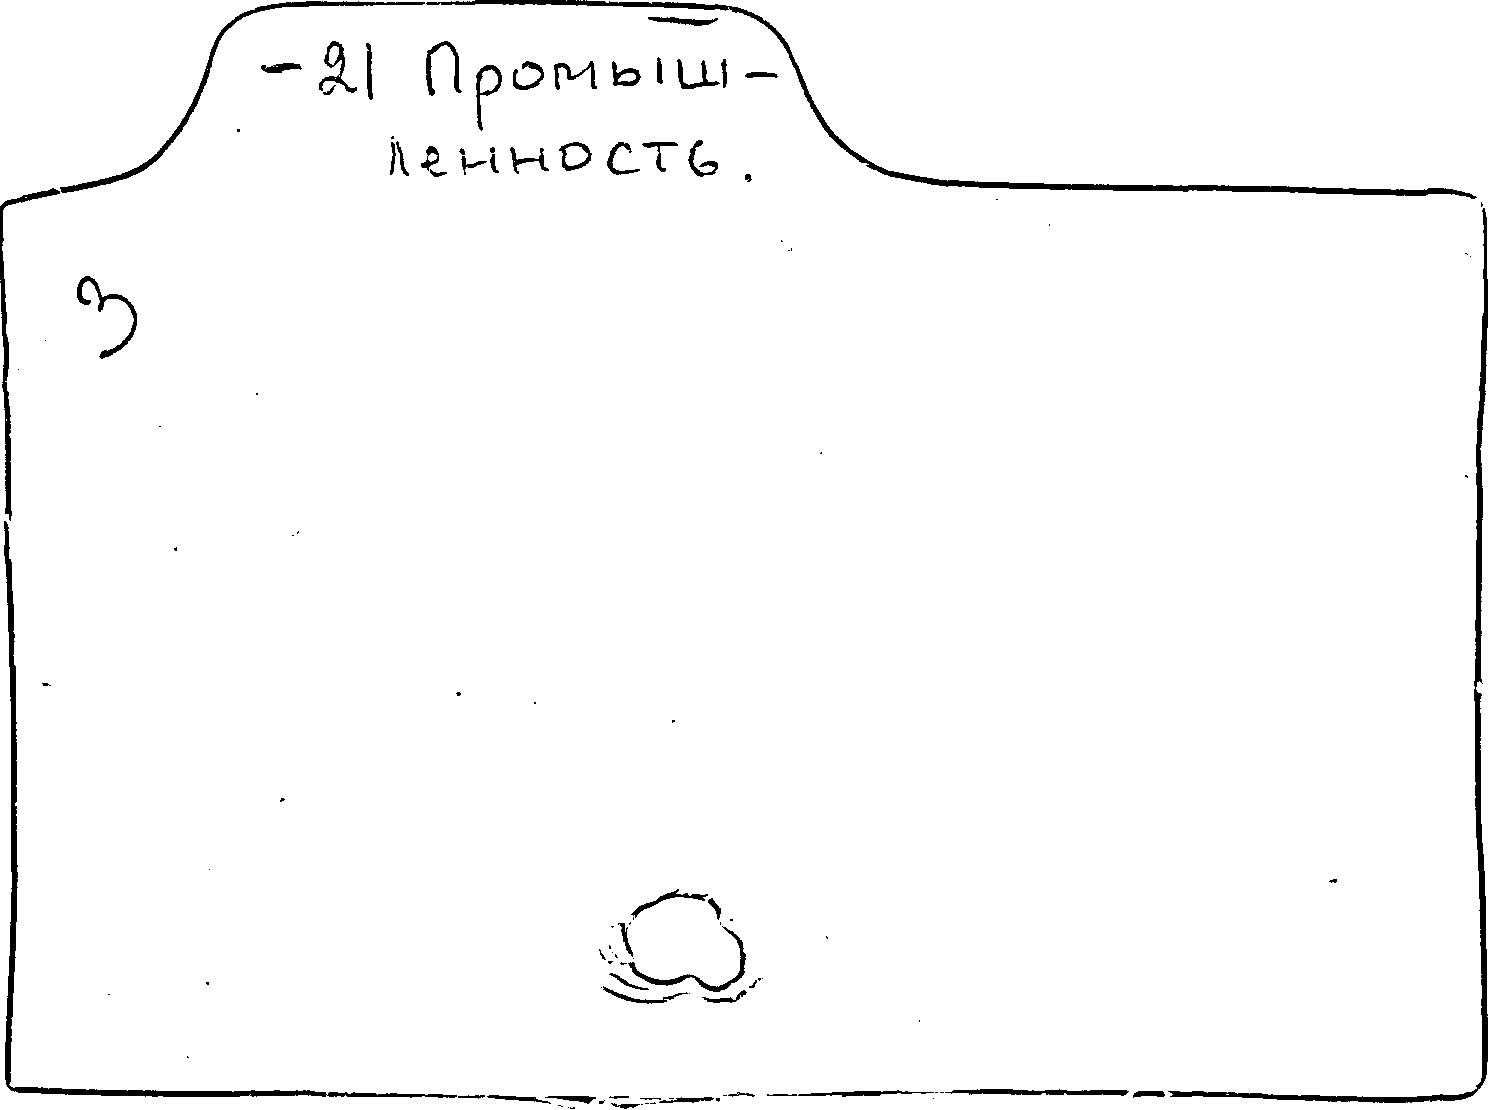 -21 Промыш-
ленность.
3